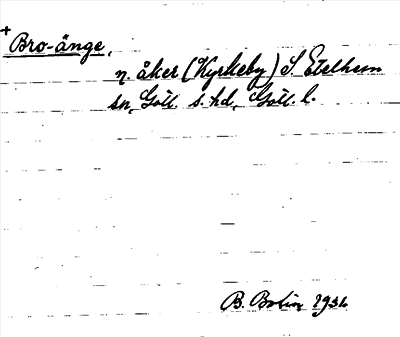 +
Bro-änge,
n. åker (Kyrkeby) S. Etelhem
sn, Gotl. s. hd, Gotl. l.
B. Bolin 1932